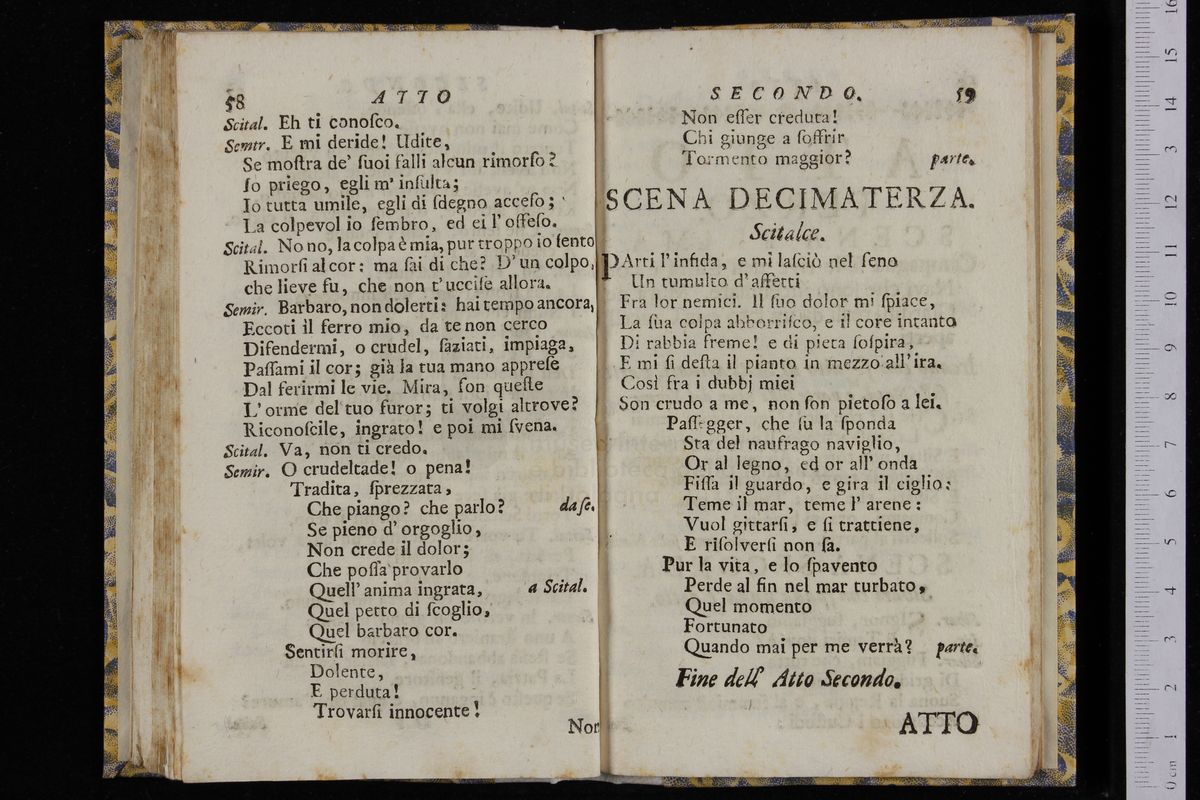 58 ATTO
Scital. Eh ti conoſco.
Semir. E mi deride! Udite,
Se moſtra de' ſuoi falli alcun rimorſo?
Io priego, egli m' inſulta;
Io tutta umile, egli di ſdegno acceſo;
La colpevol io ſembro, ed ei l' offeſo.
Scital. No no, la colpa è mia, pur troppo io ſento
Rimorſi al cor: ma ſai di che? D' un colpo,
che lieve fu, che non t' ucciſe allora.
Semir. Barbaro, non dolerti: hai tempo ancora,
Eccoti il ferro mio, da te non cerco
Difendermi, o crudel, ſaziati, impiaga,
Paſſami il cor; già la tua mano appreſe
Dal ferirmi le vie. Mira, ſon queſte
L' orme del tuo furor; ti volgi altrove?
Riconoſcile, ingrato! e poi mi ſvena.
Scital. Va, non ti credo.
Semir. O crudeltade! o pena!
Tradita, ſprezzata,
Che piango? che parlo? da ſe.
Se pieno d' orgoglio,
Non crede il dolor;
Che poſſa provarlo
Quell' anima ingrata, a Scital.
Quel petto di ſcoglio,
Quel barbaro cor.
Sentirſi morire,
Dolente,
E perduta!
Trovarſi innocente!
Non
SECONDO. 59
Non eſſer creduta!
Chi giunge a ſoffrir
Tormento maggior? parte.
SCENA DECIMATERZA.
Scitalce.
PArtì l' infida, e mi laſciò nel ſeno
Un tumulto d' affetti
Fra lor nemici. Il ſuo dolor mi ſpiace,
La ſua colpa abborriſco, e il core intanto
Di rabbia freme! e di pieta ſoſpira,
E mi ſi deſta il pianto in mezzo all' ira.
Così fra i dubbj miei
Son crudo a me, non ſon pietoſo a lei.
Paſſegger, che ſu la ſponda
Sta del naufrago naviglio,
Or al legno, ed or all' onda
Fiſſa il guardo, e gira il ciglio:
Teme il mar, teme l' arene:
Vuol gittarſi, e ſi trattiene,
E riſolverſi non ſa.
Pur la vita, e lo ſpavento
Perde al fin nel mar turbato,
Quel momento
Fortunato
Quando mai per me verrà? parte.
Fine dell' Atto Secondo.
ATTO